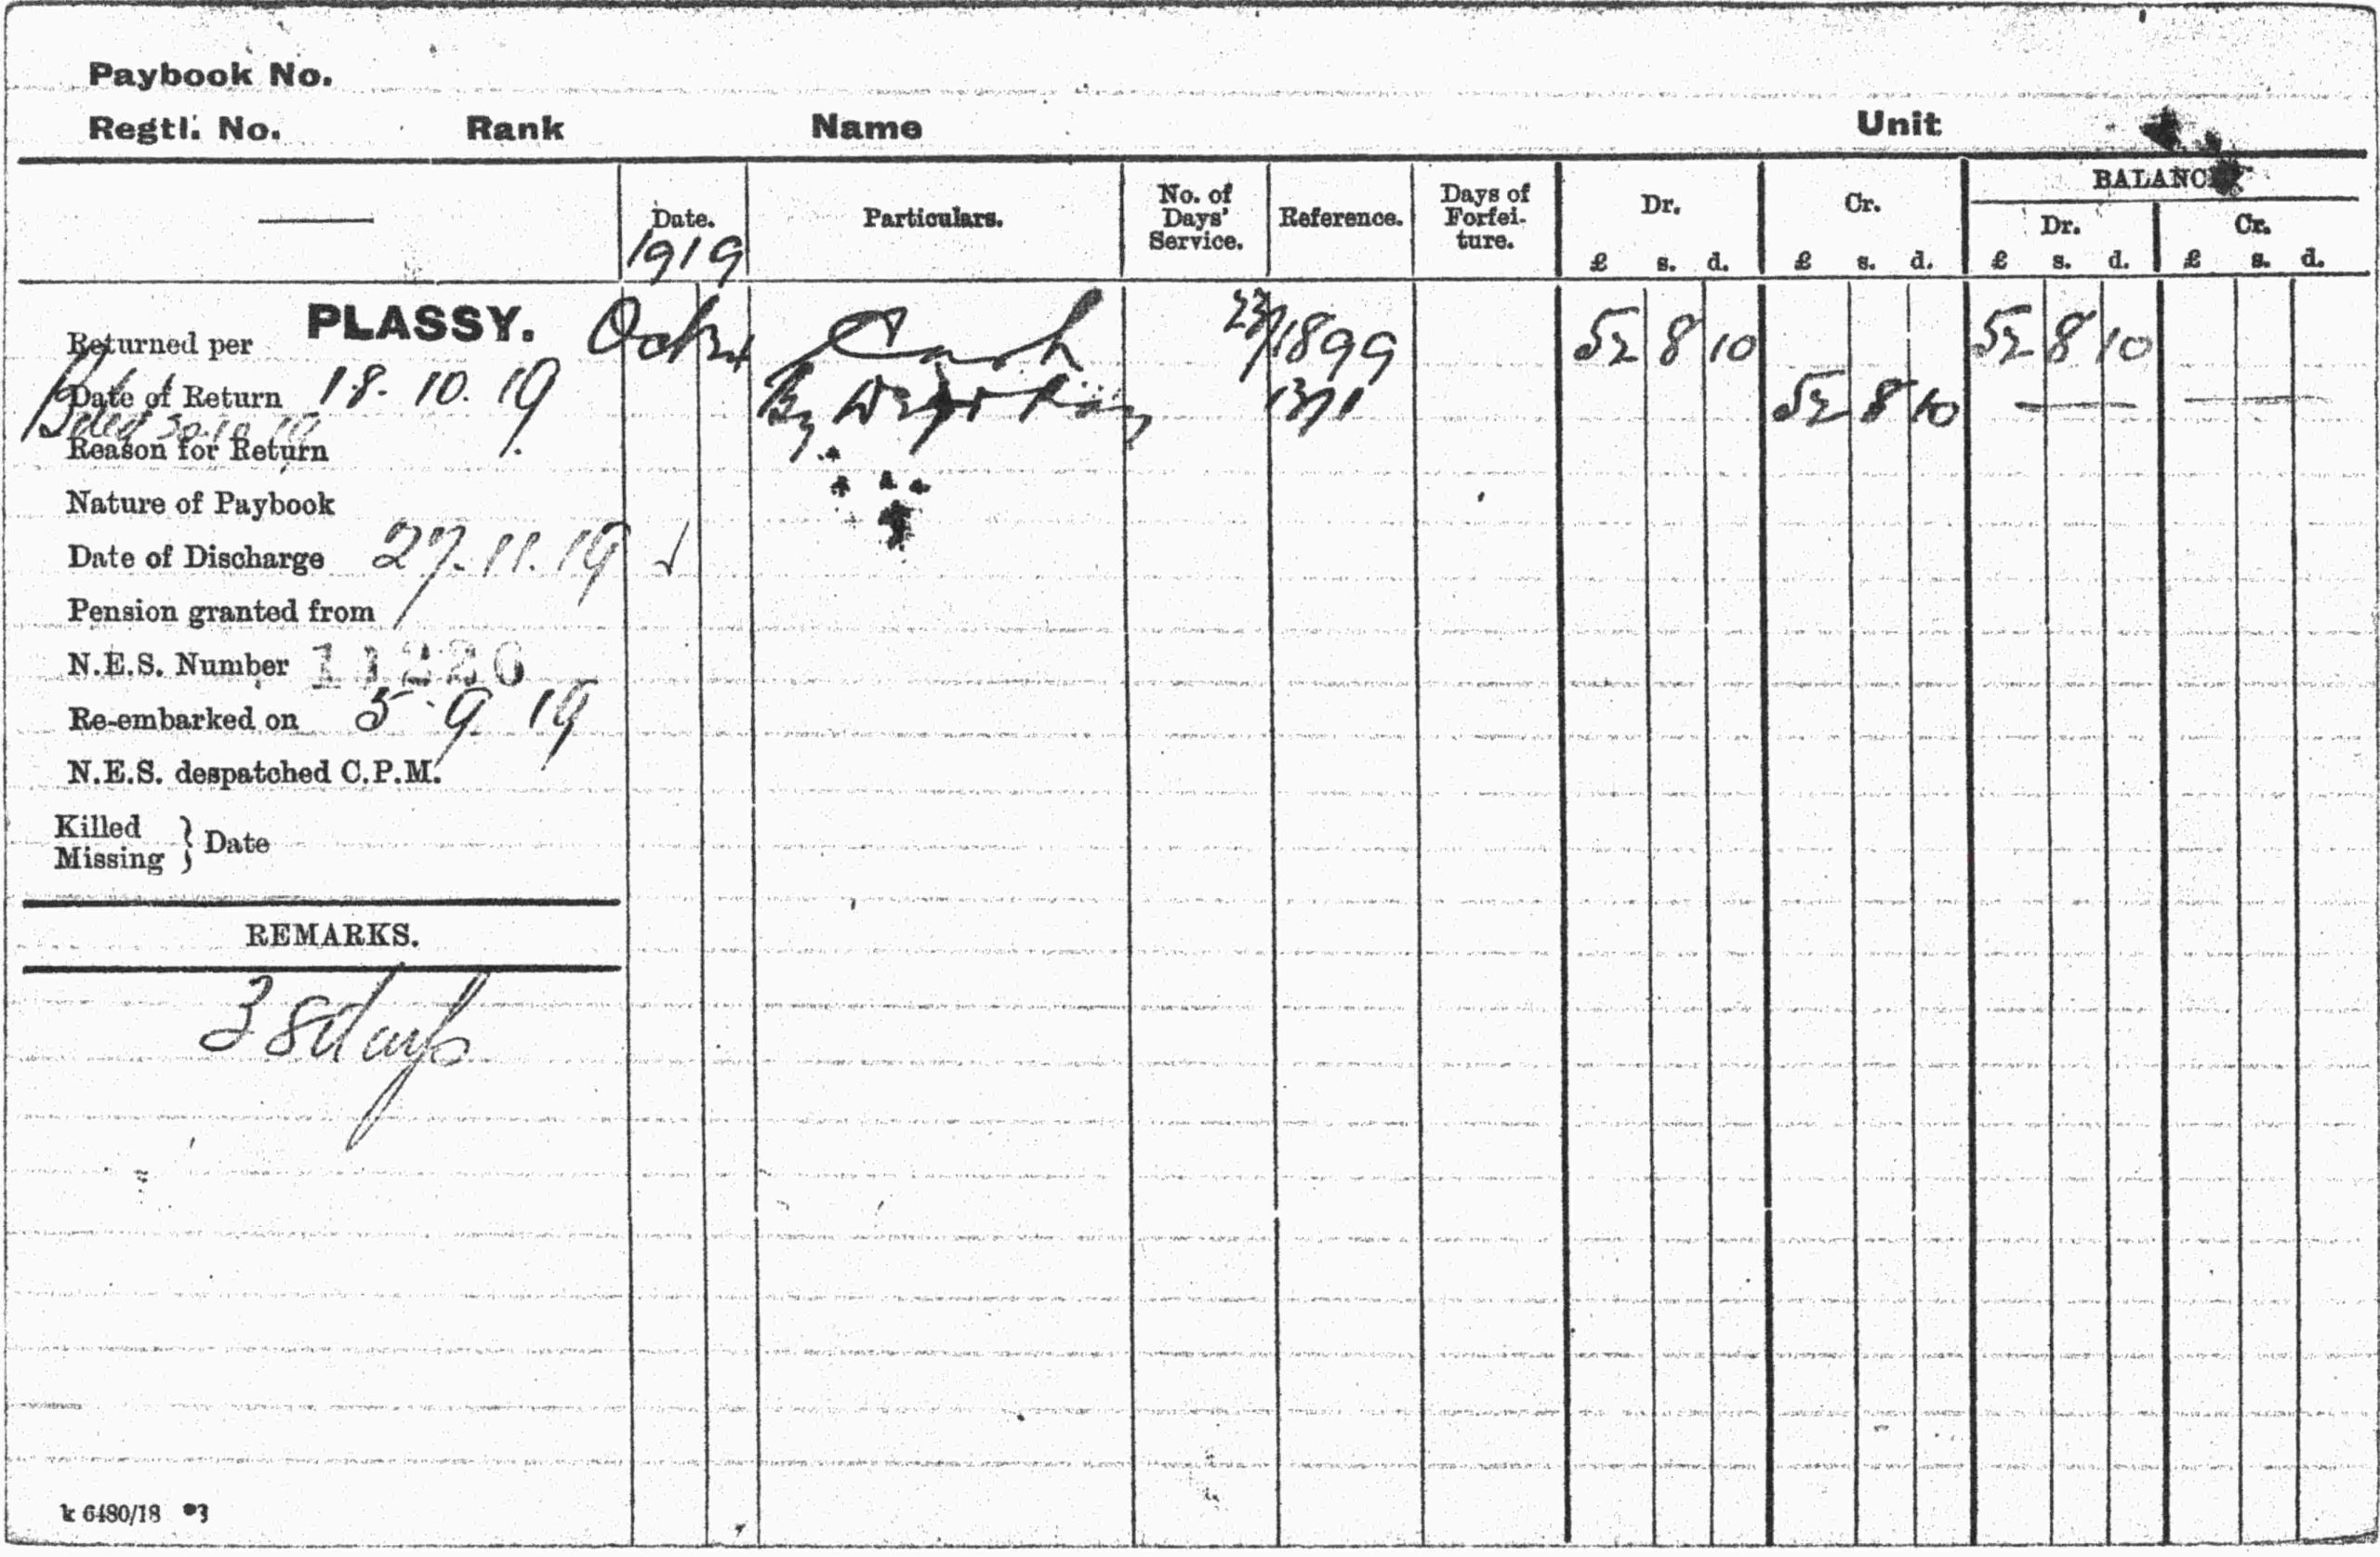 Paybook No.
Regtl. No. Rank Name Unit
Date. Particulars. No. of Days' Service. Reference. Days of Forfei-ture. Dr. Cr. BALANC
1919
Dr. Cr.
£ s. d. £ s. d. £ s. d. £ s. d.
Returned per PLASSY. Oct Cash 23/1899 52 8 10 52 8 10
Date of Return 18. 10. 19 By 52 8 10 — —
30.10.19
Reason for Return
Nature of Paybook
Date of Discharge 27.11.19 ✓
Pension granted from
N.E.S. Number
Re-embarked on 5 9 19
N.E.S. despatched C.P.M.
Killed
Missing } Date
REMARKS.
38 days
k 6480/18